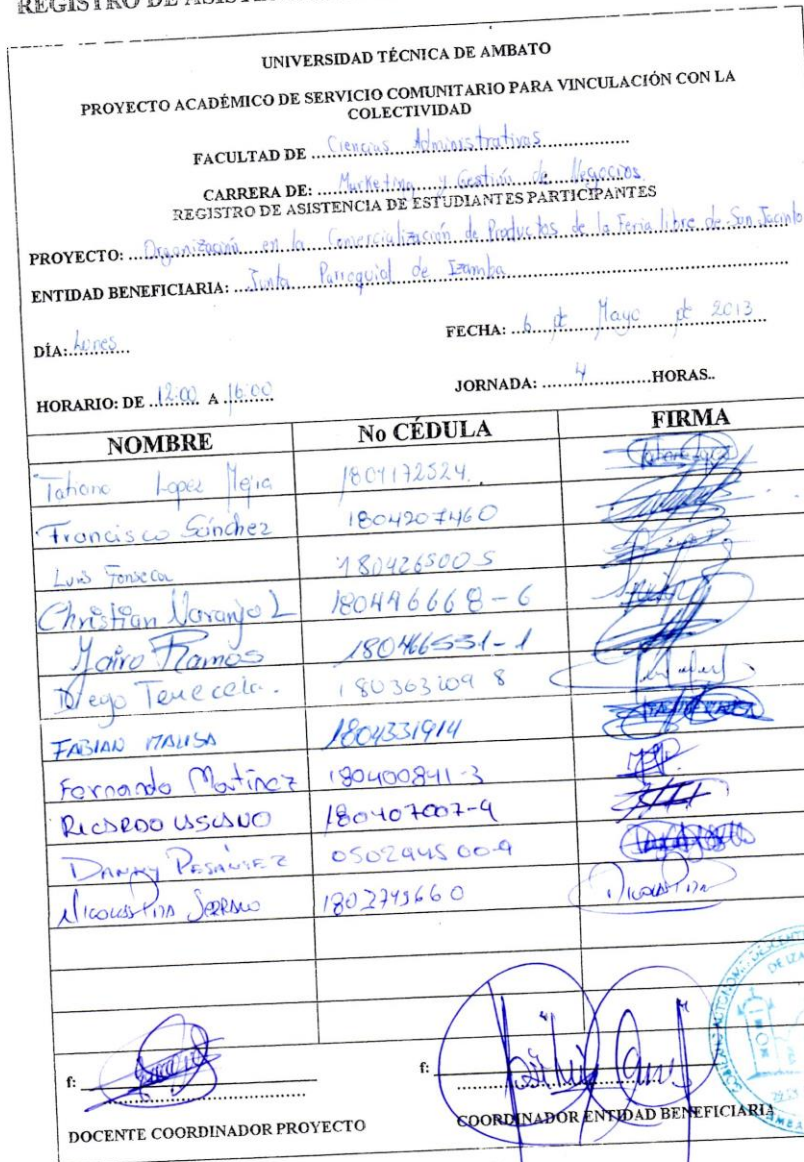 REGISTRO DE
UNIVERSIDAD TÉCNICA DE AMBATO
PROYECTO ACADÉMICO DE SERVICIO COMUNITARIO PARA VINCULACIÓN CON LA
COLECTIVIDAD
FACULTAD DE Ciencias Administrativas
CARRERA DE: Marketing y Gestión de Negocios
REGISTRO DE ASISTENCIA DE ESTUDIANTES PARTICIPANTES
PROYECTO: Organización en la Comercialización de Productos de la Feria libre de San Jacinto
ENTIDAD BENEFICIARIA: Junta Parroquial de Izamba
DÍA: Lunes FECHA: 6 de Mayo de 2013
HORARIO: DE 12:00 A 16:00 JORNADA: 4 HORAS..
NOMBRE No CÉDULA FIRMA
Tatiana Lopez Mejia 1804172524
Francisco Sánchez 1804207460
Luis Fonseca 180426500 5
Christian Naranjo L 180446668-6
Jairo Ramos 180466531-1
Diego 180363209 8
FABIAN MALISA 1804331914
Fernando Martinez 180400841-3
RICARDO 180407007-9
DANNY 050294500-9
NICOLAS PITA SERRANO 180274966 0
f: f:
DOCENTE COORDINADOR PROYECTO COORDINADOR ENTIDAD BENEFICIARIA